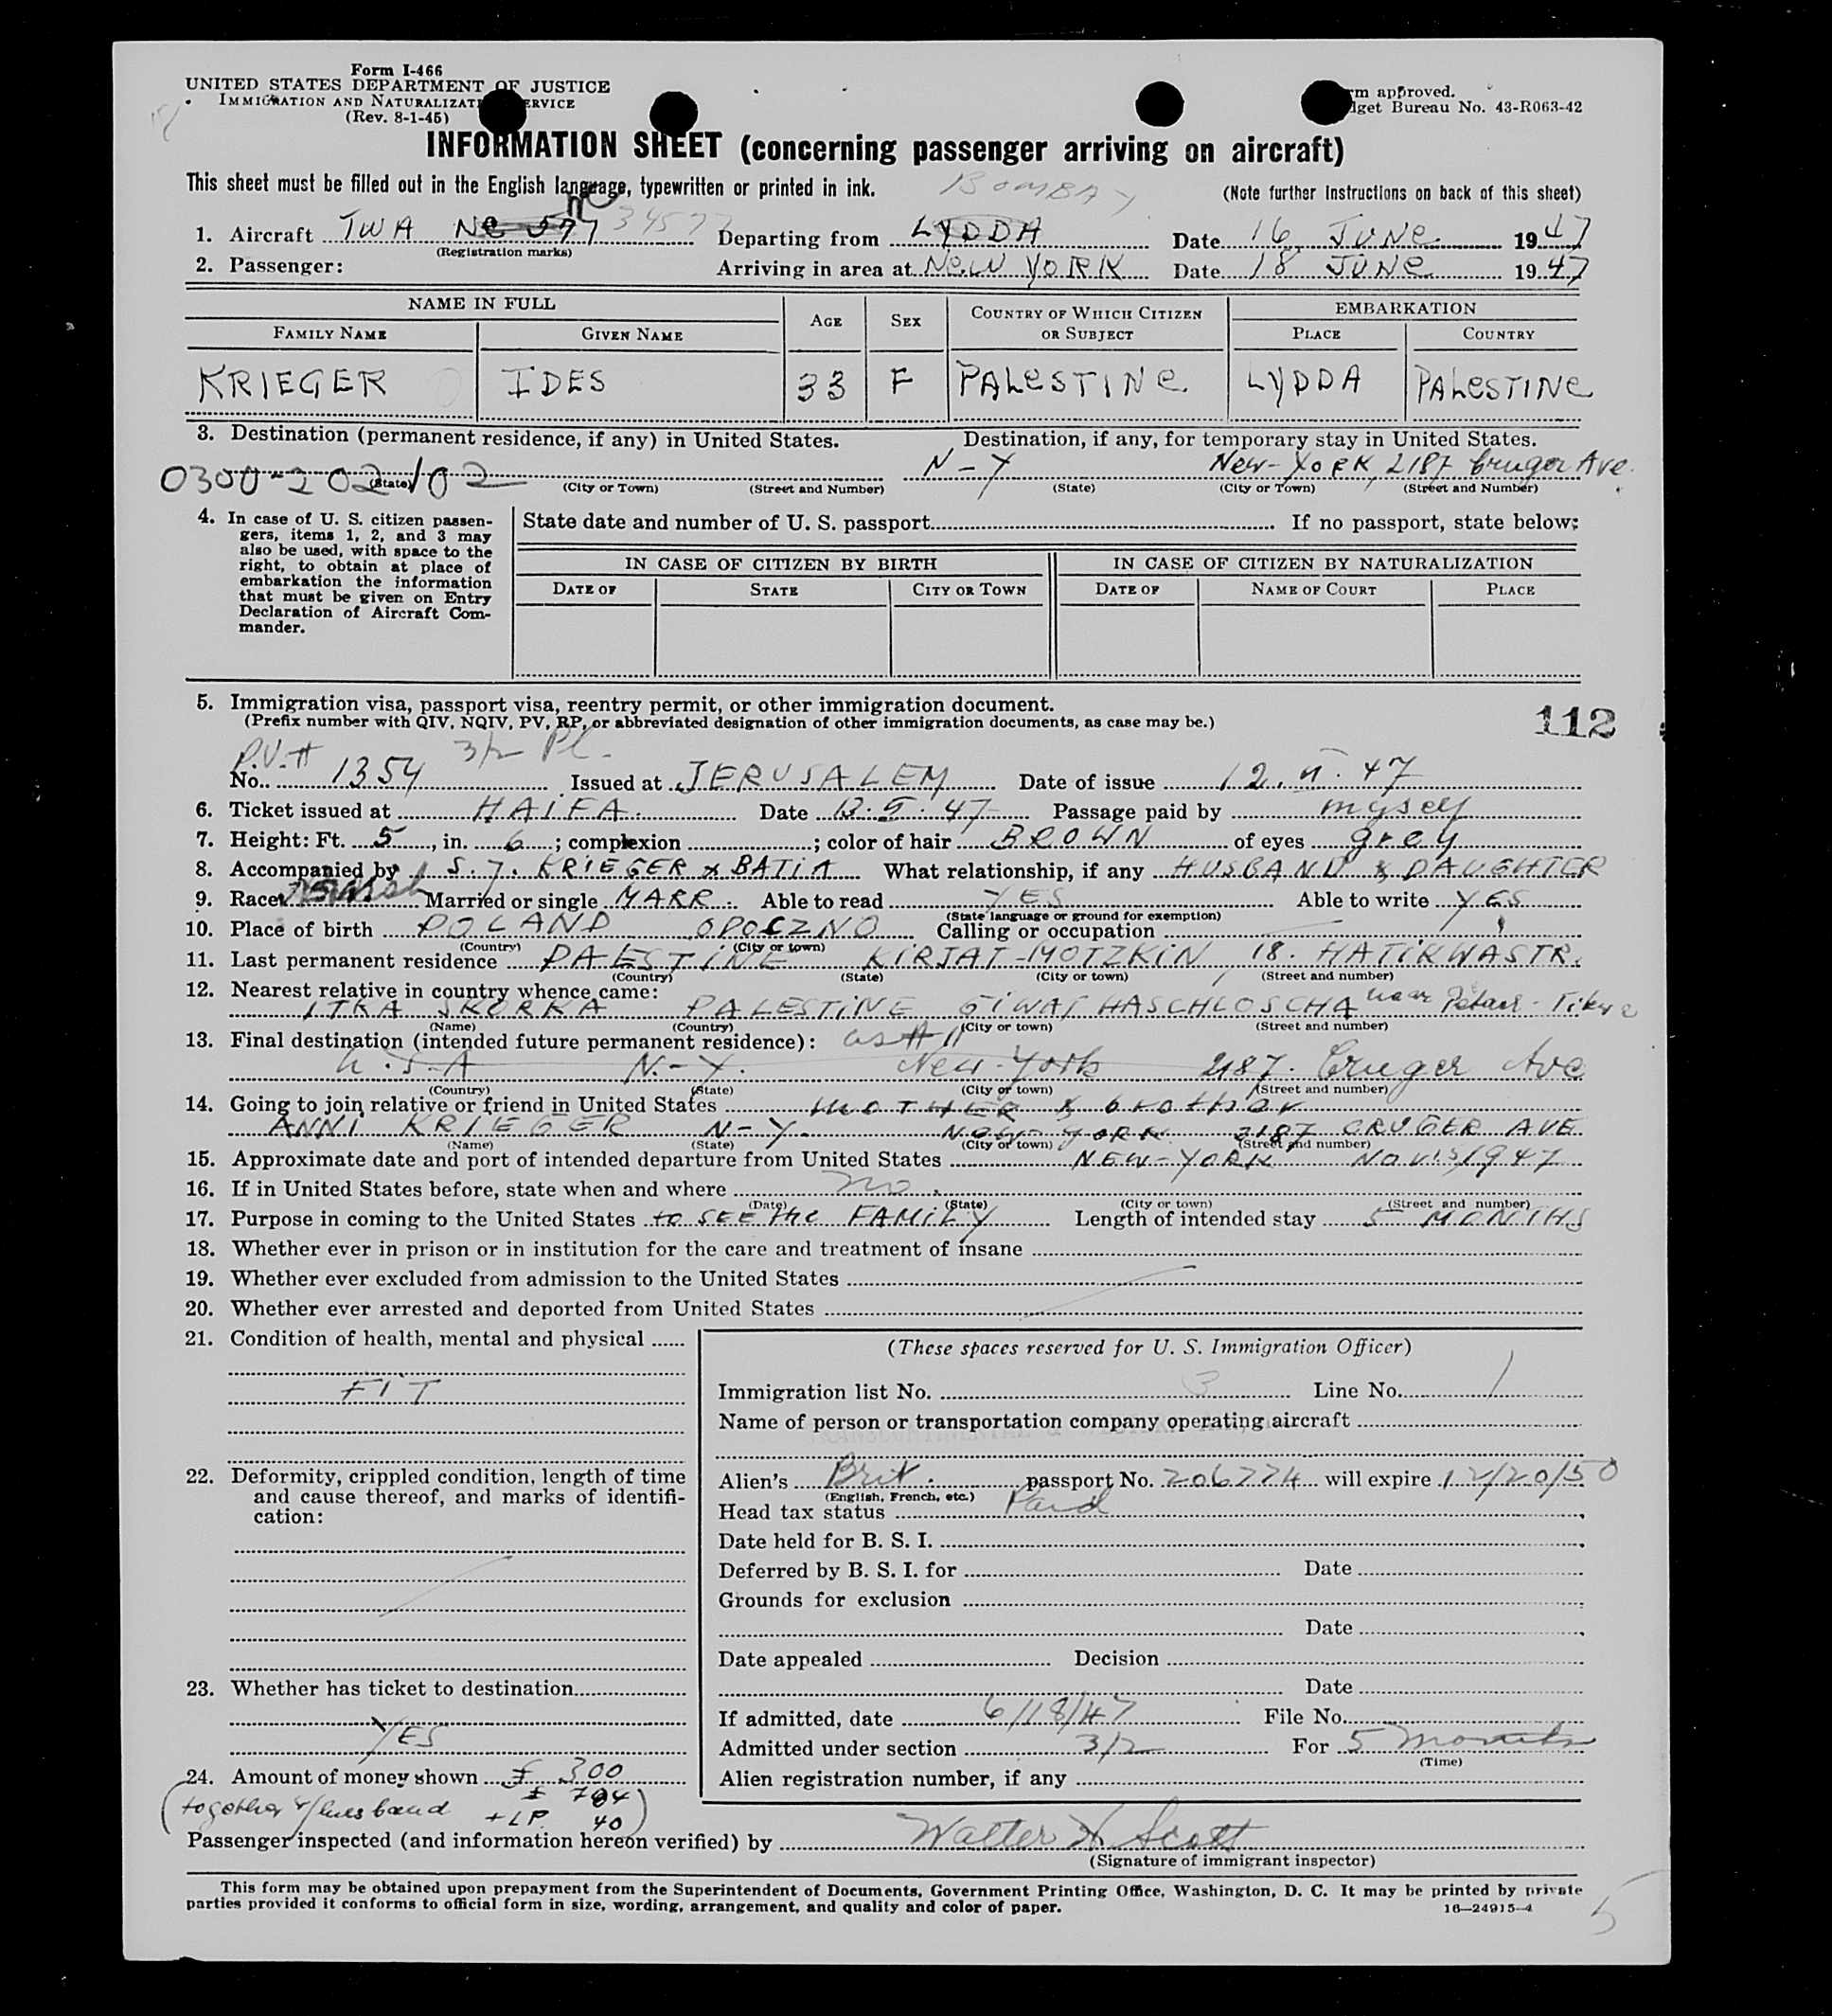 Form I-466
UNITED STATES DEPARTMENT OF JUSTICE
IMMIGRATION AND NATURALIZATI ERVICE
(Rev. 8-1-45)
rm approved.
dget Bureau No. 43-R063-42
INFORMATION SHEET (concerning passenger arriving on aircraft)
This sheet must be filled out in the English language, typewritten or printed in ink. BOMBAY (Note further instructions on back of this sheet)
1. Aircraft TWA NC 577 34577 Departing from LYDDA Date 16 JUNE 1947
(Registration marks)
2. Passenger: Arriving in area at NEW YORK Date 18 JUNE 1947
NAME IN FULL AGE SEX COUNTRY OF WHICH CITIZEN OR SUBJECT EMBARKATION
FAMILY NAME GIVEN NAME PLACE COUNTRY
KRIEGER IDES 33 F PALESTINE LYDDA PALESTINE
3. Destination (permanent residence, if any) in United States. Destination, if any, for temporary stay in United States.
0300-202/02 N-Y New-York, 2187 Cruger Ave.
(State) (City or Town) (Street and Number) (State) (City or Town) (Street and Number)
4. In case of U. S. citizen passengers, items 1, 2, and 3 may also be used, with space to the right, to obtain at place of embarkation the information that must be given on Entry Declaration of Aircraft Commander.
State date and number of U. S. passport If no passport, state below:
IN CASE OF CITIZEN BY BIRTH IN CASE OF CITIZEN BY NATURALIZATION
DATE OF STATE CITY OR TOWN DATE OF NAME OF COURT PLACE
5. Immigration visa, passport visa, reentry permit, or other immigration document.
(Prefix number with QIV, NQIV, PV, RP, or abbreviated designation of other immigration documents, as case may be.)
112
P.V.# 3/2 Pl.
No. 1354 Issued at JERUSALEM Date of issue 12. 47
6. Ticket issued at HAIFA. Date 13.5.47 Passage paid by myself
7. Height: Ft. 5, in. 6; complexion ; color of hair BROWN of eyes grey
8. Accompanied by S.J. KRIEGER & BATIA What relationship, if any HUSBAND & DAUGHTER
9. Race Married or single MARR. Able to read YES Able to write YES
(State language or ground for exemption)
10. Place of birth POLAND OPOCZNO Calling or occupation
(Country) (City or town)
11. Last permanent residence PALESTINE KIRJAT-MOTZKIN, 18. HATIKWASTR.
(Country) (State) (City or town) (Street and number)
12. Nearest relative in country whence came:
ITKA SKORKA PALESTINE GIWAT HASCHLOSCHA near Petach-Tikva
(Name) (Country) (City or town) (Street and number)
13. Final destination (intended future permanent residence): as # 11
U.S.A N.-Y. New-York 2187. Cruger Ave
(Country) (State) (City or town) (Street and number)
14. Going to join relative or friend in United States MOTHER & brother
ANNI KRIEGER N-Y. NEW-YORK 2187 CRUGER AVE
(Name) (State) (City or town) (Street and number)
15. Approximate date and port of intended departure from United States NEW-YORK NOV. 15/947
16. If in United States before, state when and where no.
(Date) (State) (City or town) (Street and number)
17. Purpose in coming to the United States to SEE the FAMILY Length of intended stay 5 MONTHS
18. Whether ever in prison or in institution for the care and treatment of insane
19. Whether ever excluded from admission to the United States
20. Whether ever arrested and deported from United States
21. Condition of health, mental and physical
FIT
22. Deformity, crippled condition, length of time and cause thereof, and marks of identification:
23. Whether has ticket to destination
YES
24. Amount of money shown £ 300
(together w/husband $ 704
+LP. 40)
(These spaces reserved for U. S. Immigration Officer)
Immigration list No. 3 Line No. 1
Name of person or transportation company operating aircraft
Alien's Brit. passport No. 206774 will expire 12/20/50
(English, French, etc.)
Head tax status Paid
Date held for B. S. I.
Deferred by B. S. I. for Date
Grounds for exclusion
Date
Date appealed Decision
Date
If admitted, date 6/18/47 File No.
Admitted under section 3/2 For 5 months
(Time)
Alien registration number, if any
Passenger inspected (and information hereon verified) by Walter H Scott
(Signature of immigrant inspector)
This form may be obtained upon prepayment from the Superintendent of Documents, Government Printing Office, Washington, D. C. It may be printed by private
parties provided it conforms to official form in size, wording, arrangement, and quality and color of paper. 16—24915-4
5